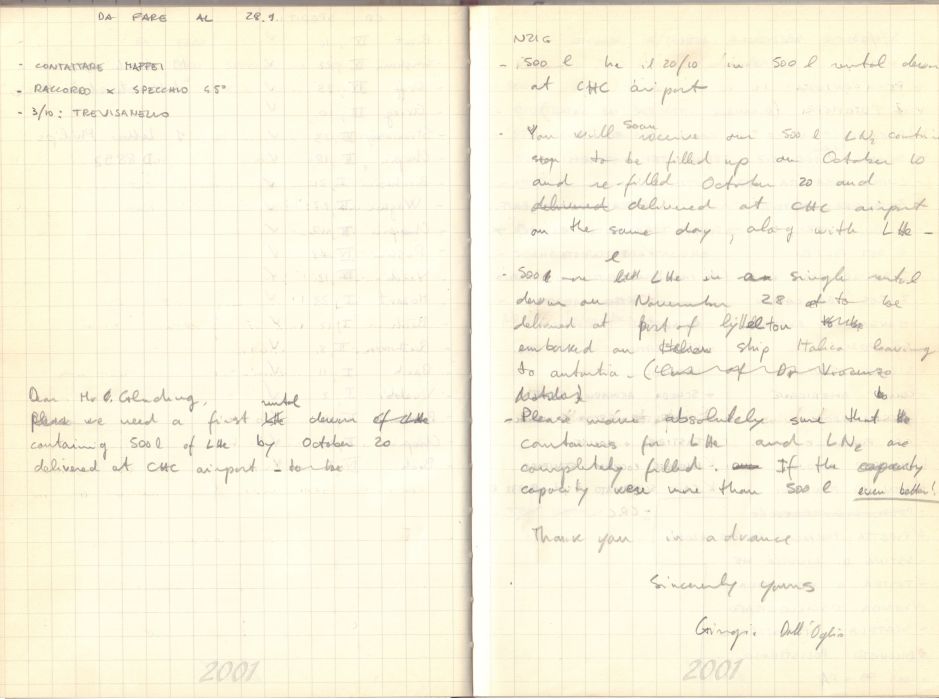 DA FARE AL 28.9.
- CONTATTARE MAFFEI
- RACCORDO x SPECCHIO 45°
- 3/10: TREVISANELLO
Dear Mr
rental
Please we need a first dewar of LHe
containing 500 l of LHe by October 20
delivered at CHC airport - to be
2001
NZIG
- 500 l he il 20/10 in 500 l rental dewar
at CHC airport
soon
- You will receive our 500 l LN2
to be filled up on October 10
and re-filled October 20 and
delivered delivered at CHC airport
on the same day, along with LHe -
l
- 500 LHe in single rental
dewar on November 28 to be
delivered at port of
embarked on ship Italica leaving
to
- Please make absolutely sure that
containers for LHe and LN2 are
completely filled. If the capacity
capacity were more than 500 l even better!
Thank you in advance
Sincerely Yours
Giorgio Dall'Oglio
2001